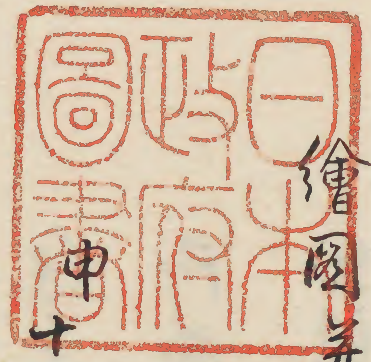 日本
政府
圖書
繪圖
申
十